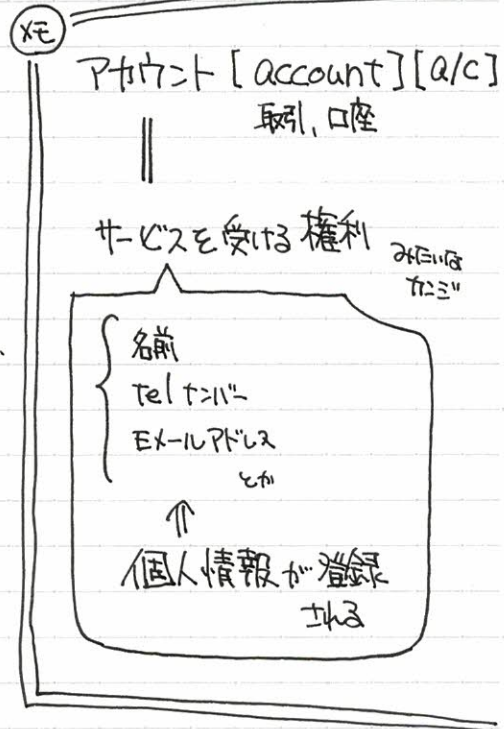 メモ
アカウント [account][a/c]
取引、口座
サービスを受ける権利
みたいな
カンジ
名前
telナンバー
Eメールアドレス
とか
個人情報が登録
される